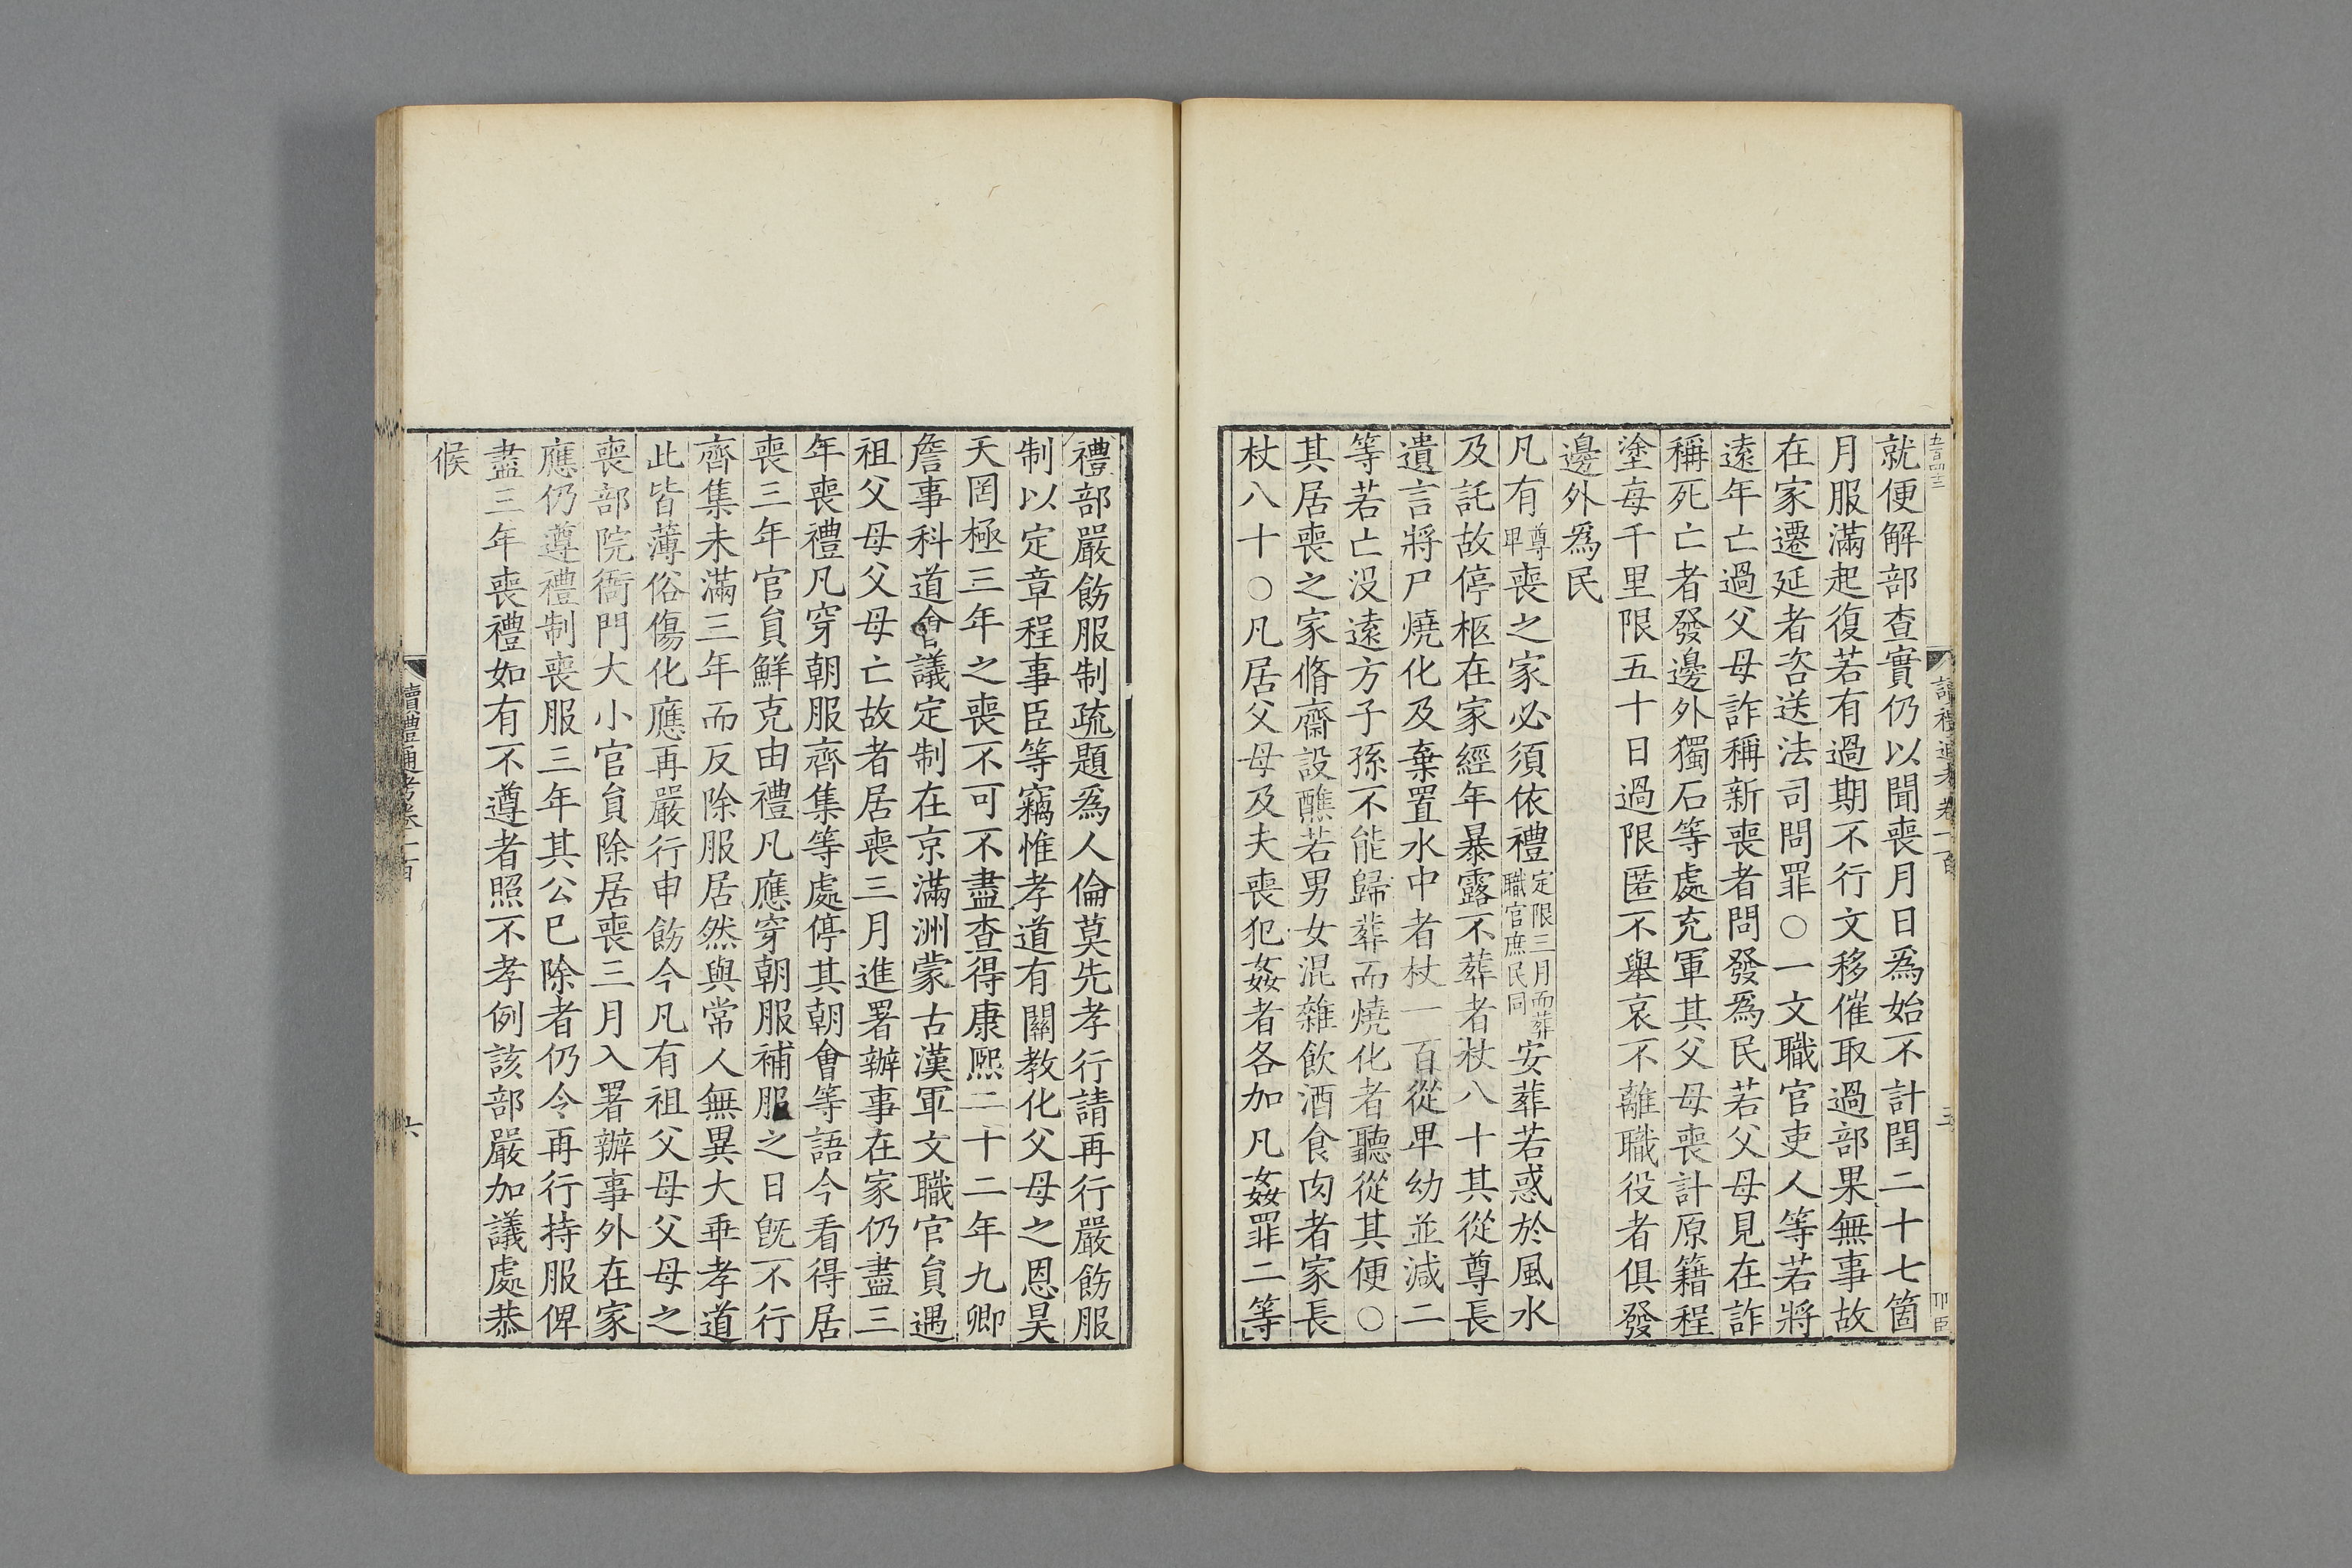 就便解部查實仍以聞喪月日爲始不計閏二十七箇
月服滿起復若有過期不行文移催取過部果無事故
在家遷延者咨送法司問罪○一文職官吏人等若將
遠年亡過父母詐稱新喪者問發爲民若父母見在詐
稱死亡者發邊外獨石等處充軍其父母喪計原籍程
塗每千里限五十日過限匿不舉哀不離職役者俱發
邊外爲民
凡有尊卑喪之家必須依禮定限三月而葬職官庶民同安葬若惑於風水
及託故停柩在家經年暴露不葬者杖八十其從尊長
遺言將尸燒化及棄置水中者杖一百從卑幼並減二
等若亡没遠方子孫不能歸葬而燒化者聽從其便○
其居喪之家脩齋設醮若男女混雜飲酒食肉者家長
杖八十○凡居父母及夫喪犯姦者各加凡姦罪二等
禮部嚴飭服制疏題爲人倫莫先孝行請再行嚴飭服
制以定章程事臣等竊惟孝道有關教化父母之恩昊
天罔極三年之喪不可不盡查得康熙二十二年九卿
詹事科道會議定制在京滿洲蒙古漢軍文職官負遇
祖父母父母亡故者居喪三月進署辦事在家仍盡三
年喪禮凡穿朝服齊集等處停其朝會等語今看得居
喪三年官負鮮克由禮凡應穿朝服補服之日旣不行
齊集未滿三年而反除服居然與常人無異大乖孝道
此皆薄俗傷化應再嚴行申飭今凡有祖父母父母之
喪部院衙門大小官負除居喪三月入署辦事外在家
應仍遵禮制喪服三年其公巳除者仍令再行持服俾
盡三年喪禮如有不遵者照不孝例該部嚴加議處恭
候
讀禮通考卷一百
六